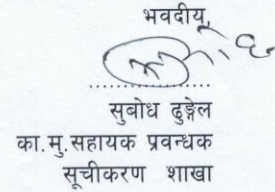 भवदीय,
....................
सुबोध ढुङ्गेल
का.मु.सहायक प्रवन्धक
सूचीकरण शाखा